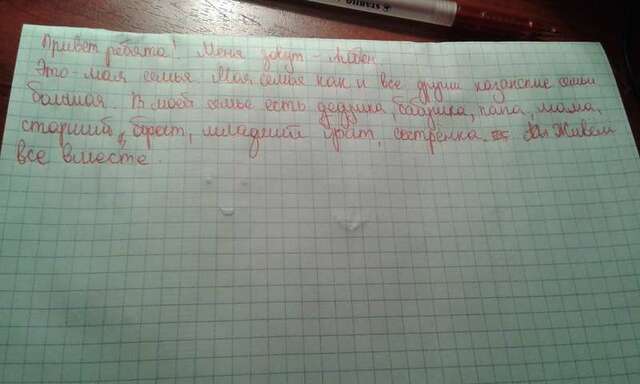 Привет ребята! Меня зовут -
Это - моя семья. Моя семья как и все другии казанские семьи
большая. В моей семье есть дедушка, бабушка, папа, мама,
старший брат, младший брат, сестрёнка. Живем
все вместе.